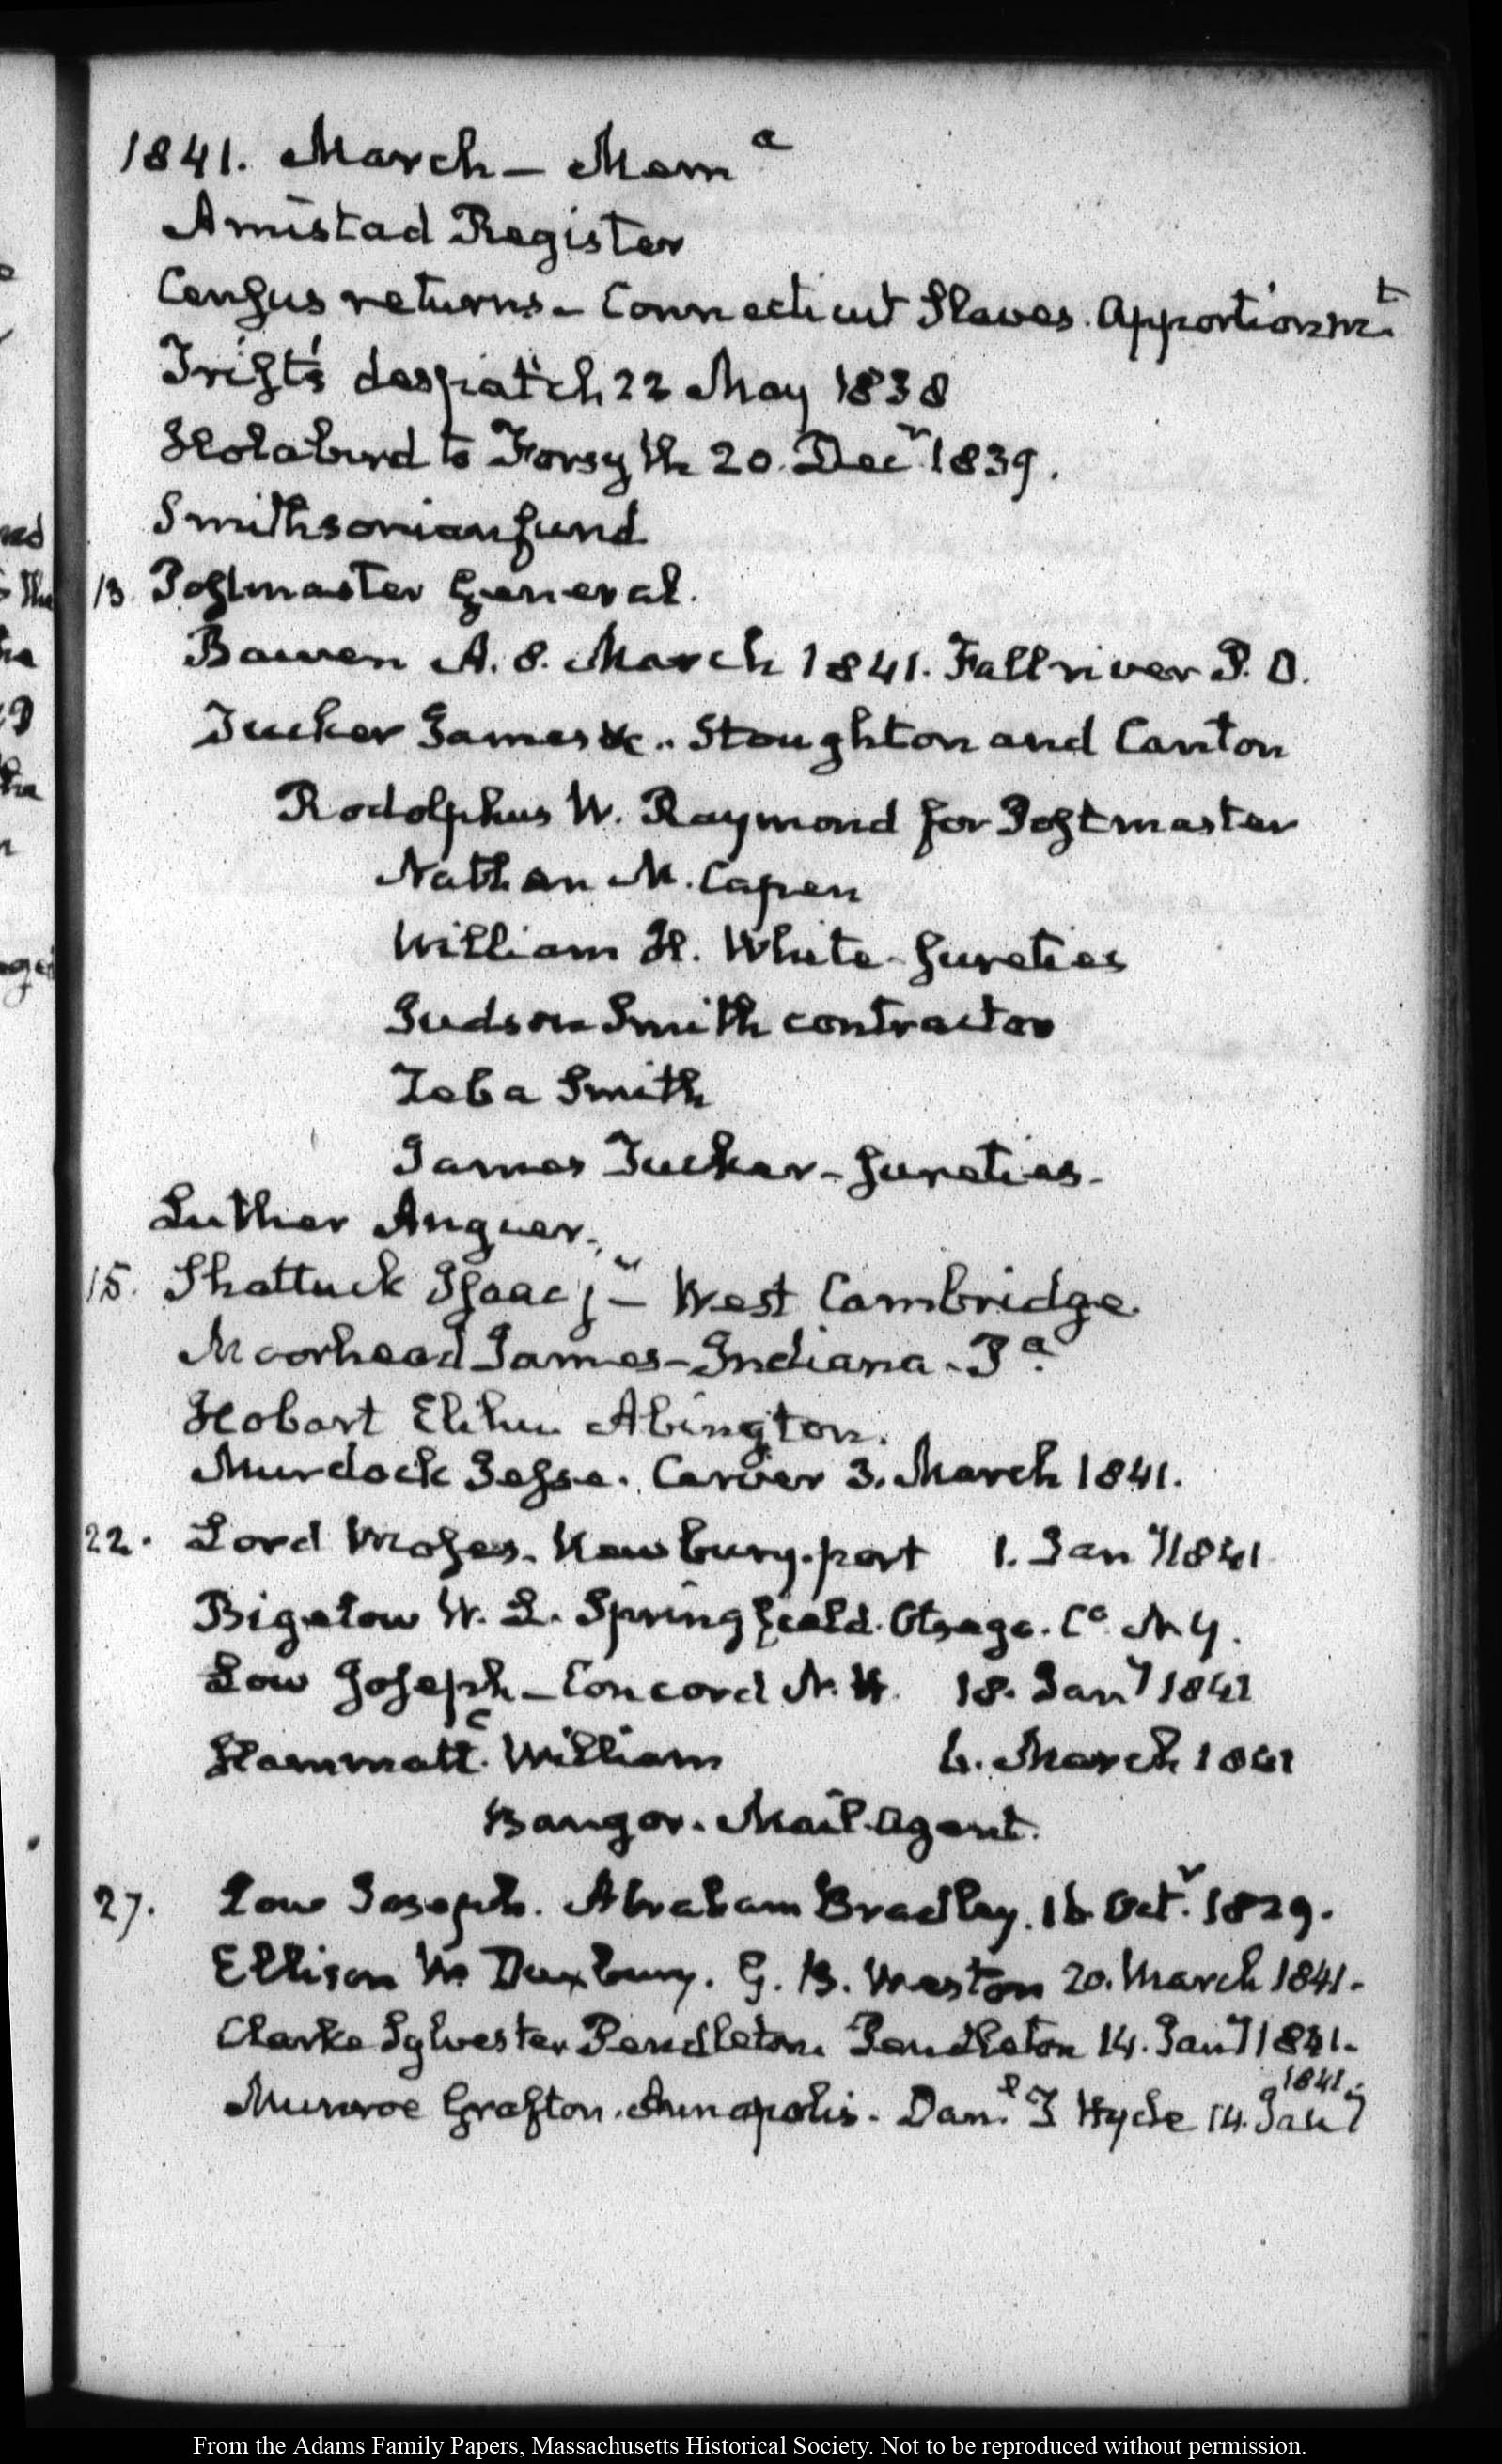 1841. March – Mem<sup>a</sup>
Amistad Register
Census returns – Connecticut Slaves. Apportionm<sup>t</sup>.
Trist's despatch 22 May 1838
Holabird to Forsyth 20. Dec<sup>r</sup> 1839.
Smithsonian fund
13. Postmaster General.
Bowen A. 8. March 1841. Fall river P. O.
Tucker James &c. Stoughton and Canton
Rodolphus W. Raymond for Postmaster
Nathan M. Capen
William H. White – Sureties
Judson Smith contractor
Zeba Smith
James Tucker – Sureties.
Luther Angier.
15. Shattuck Isaac j<sup>r</sup> – West Cambridge.
Moorhead James – Indiana. P<sup>a</sup>.
Hobart Elihu Abington.
Murdock Jesse. Carver 3. March 1841.
22. Lord Moses. Newbury-port 1. Jan<sup>y</sup> 1841
Bigelow W. L. Springfield. Otsego. C<sup>o</sup> N.Y.
Low Joseph – Concord N. H. 18. Jan<sup>y</sup> 1841
Hammatt. William 6. March 1841
Bangor. Mail-Agent.
27. Low Joseph. Abraham Bradley. 16. Oct<sup>r</sup>. 1829.
Ellison W. Duxbury. G. B. Weston 20. March 1841.
Clarke Sylvester Pendleton. Pendleton 14. Jan<sup>y</sup> 1841.
Munroe Grafton. Annapolis. Dan<sup>l</sup>. T Hyde 14. Jan<sup>y</sup> 1841.
From the Adams Family Papers, Massachusetts Historical Society. Not to be reproduced without permission.